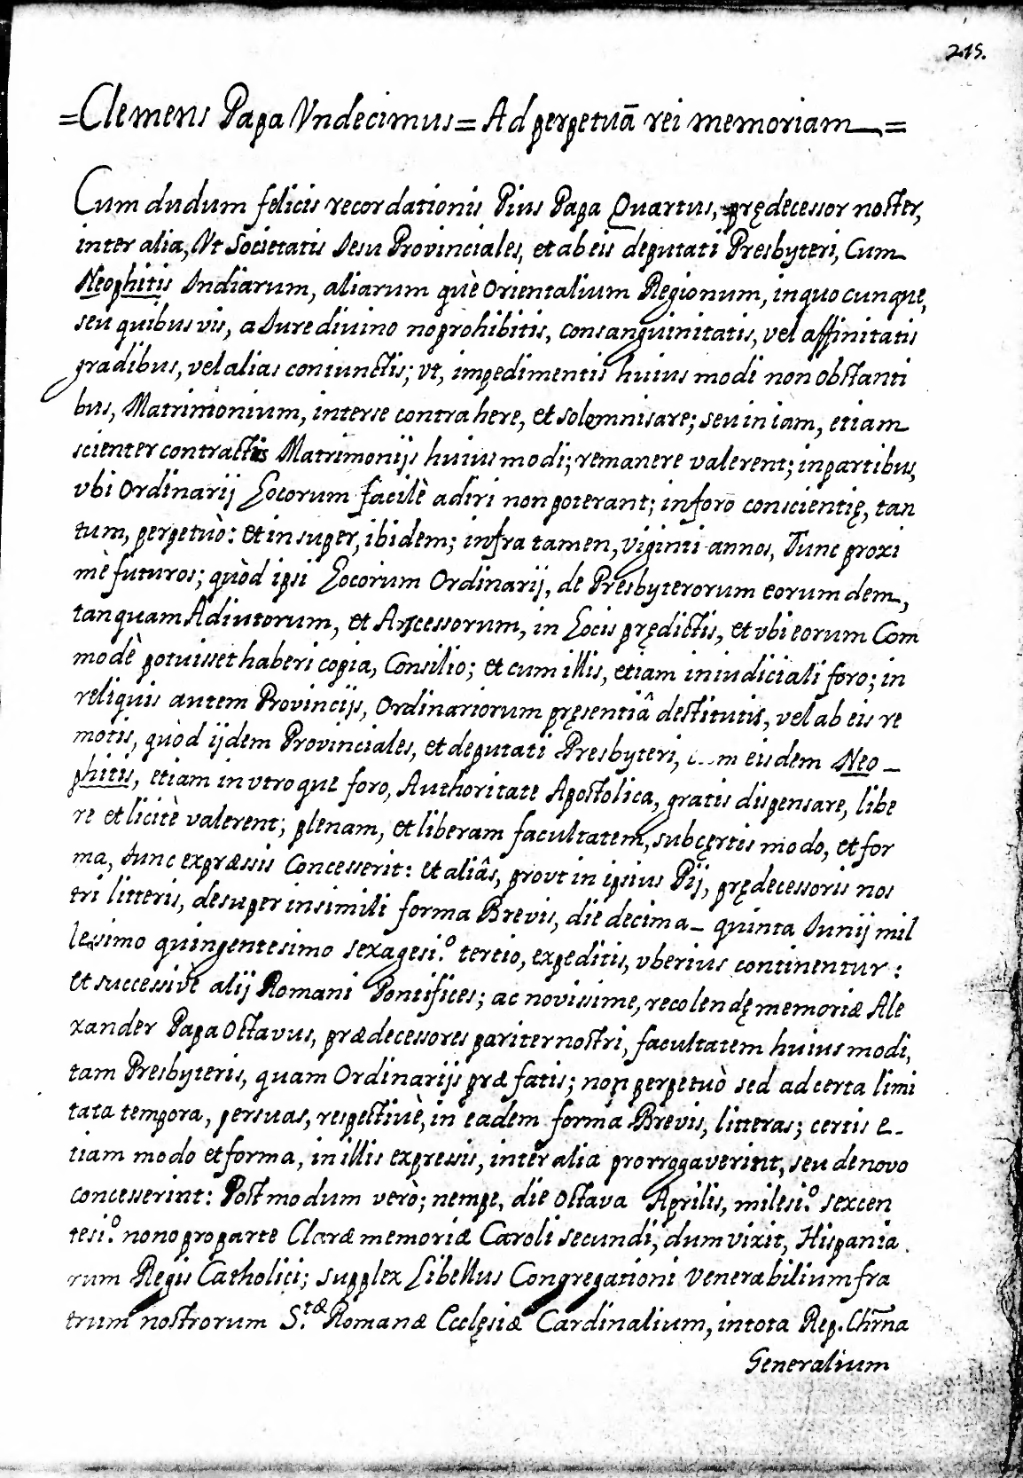 215.
=Clemens Papa Vndecimus= Ad perpetuā rei memoriam=
Cum dudum felicis recordationis Pius Papa Quartus, prędecessor noster,
inter alia, Vt Societatis Jesu Provinciales, et ab eis deputati Presbyteri, Cum
Neophitis Indiarum, aliarum què Orientalium Regionum, in quocunque,
seu quibusvis, a Jure divino no prohibitis, consanguinitatis, vel affinitatis
gradibus, vel alias coniunctis; vt, impedimentis huius modi non obstanti
bus, Matrimonium, inter se contrahere, et solemnisare; seu in iam, etiam
scienter contractis Matrimonijs huius modi; remanere valerent; in partibus,
vbi Ordinarij Locorum facilè adiri non poterant; in foro conscientię, tan
tum, perpetuò: et in super, ibidem; infra tamen, viginti annos, Tunc proxi
mè futuros; quòd ipsi Locorum Ordinarij, de Presbyterorum eorumdem,
tanquam Adiutorum, et Ascessorum, in Locis prędictis, et vbi eorum Com
modè potuisset haberi copia, Consilio; et cum illis, etiam in iudiciali foro; in
reliquis autem Provincijs, Ordinariorum pręsentiâ destitutis, vel ab eis re
motis, quòd ijdem Provinciales, et deputati Presbyteri, eisdem Neo_
phitis, etiam in vtroque foro, Authoritate Apostolica, gratis dispensare, libe
re et licitè valerent; plenam, et liberam facultatem, sub çertis modo, et for
ma, tunc expræssis Concesserit: et aliâs, provt in ipsius Pij, prędecessoris nos
tri litteris, desuper in simili forma Brevis, die decima_ quinta Junij mil
lesimo quingentesimo sexagesi.º tertio, expeditis, vberius continentur:
et successivè alij Romani Pontifices; ac novissime, recolendę memoriæ Ale
xander Papa Octavus, prædecessores pariter nostri, facultatem huius modi,
tam Presbyteris, quam Ordinarijs præfatis; non perpetuò sed ad certa limi
tata tempora, per suas, respectivè, in eadem forma Brevis, litteras; certis e_
tiam modo et forma, in illis expressis, inter alia prorrogaverint, seu denovo
concesserint: Postmodum verò; nempe, die Octava Aprilis, milesi.º sexcen
tesi.º nono pro parte Claræ memoriæ Caroli secundi, dum vixit, Hispania
rum Regis Catholici; supplex Libellus Congregationi Venerabilium fra
trum nostrorum S.tæ Romanæ Ecclęsiæ Cardinalium, in tota Rep. Chrna
Generalium